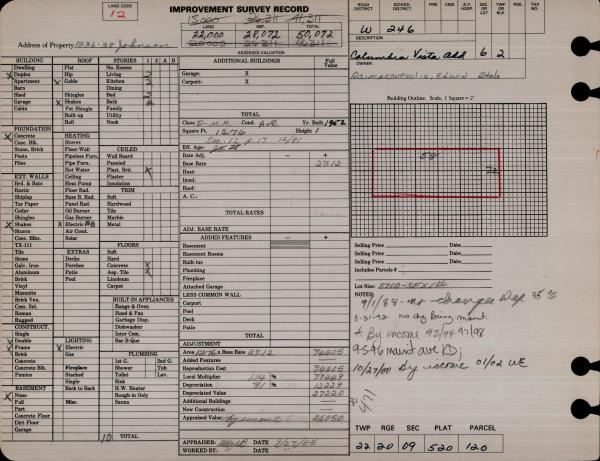 LAND CODE
12
IMPROVEMENT SURVEY RECORD
LAND IMP. TOTAL
22,000 28,072 50,072
ASSESSED VALUATION
Address of Property 1236-38 Johnson
ROAD DISTRICT SCHOOL DISTRICT FIRE CEM. A.P. HOSP. SEC OR LOT TWP OR BLK. RGE. TAX NO.
W 246
DESCRIPTION
Columbia Vista add 6 2
OWNER:
Asimakoupoulis, Edwin Etals
BUILDING ROOF STORIES 1 2 3 A B
Dwelling Flat No. Rooms
Duplex Hip Living
Apartment Gable Kitchen
Barn Dining
Shed Shingles Bed
Garage Shakes Bath
Cabin Pat. Shingle Family
Built-up Utility
Roll Nook
FOUNDATION HEATING
Concrete Stoves
Conc. Blk. Floor-Wall CEILED
Stone, Brick Pipeless Furn. Wall Board
Posts Pipe Furn. Paneled
Piles Hot Water Plast. Brd.
Ceiling Plaster
EXT. WALLS Heat Pump Insulation
Brd. & Bats Floor Rad. TRIM
Rustic Base B. Rad. Soft
Shiplap Panel Rad. Hardwood
Tar Paper Oil Burner Tile
Cedar Gas Burner Marble
Shingles Electric BB Metal
Shakes Air Cond.
Stucco Solar
TX-111
Conc. Blks. FLOORS
Tile EXTRAS Soft
Stone Decks Hard
Galv. Iron Porches Concrete
Aluminum Patio Asp. Tile
Brick Pool Linoleum
Vinyl Carpet
Masonite
Brick Ven. BUILT-IN APPLIANCES
Com. Sel. Range & Oven
Roman Hood & Fan
Rugged Garbage Disp.
CONSTRUCT. Dishwasher
Single Inter Com.
Double LIGHTING Bar-B-Que
Frame Electric
Brick Gas PLUMBING
Concrete 1st G. 2nd G.
Concrete Blk. Fireplace Shower Tub
Pumice Stacked Toilet Lav.
Single Sink
BASEMENT Back to Back H.W. Heater
None Rough-in Only
Full Misc. Sauna
Part
Concrete Floor
Dirt Floor
Garage
10 TOTAL
ADDITIONAL BUILDINGS Full Value
Garage: X
Carport: X
TOTAL
Class D-M.R. Cond. AVR Yr. Built 1952
Square Ft. 1276 Height 1
Sec. 12 p. 17 12/81
Eff. Age:
Rate Adj. - +
Base Rate 27.12
Heat:
Insul:
Roof:
A. C.:
TOTAL RATES
ADJ. BASE RATE
ADDED FEATURES - +
Basement
Basement Rooms
Built-ins
Plumbing
Fireplace
Attached Garage
LESS COMMON WALL
Carport
Pool
Deck
Patio
TOTAL
ADJUSTMENT
Area 1276 x Base Rate 27.12 34605
Added Features
Reproduction Cost 34605
Local Multiplier 114 % 39449
Depreciation 31 % 12229
Depreciated Value 27220
Additional Buildings
New Construction
Appraised Value by income 26050
APPRAISER: DATE 9/27/85
WORKED BY: DATE
Building Outline Scale, 1 Square = 2'
58
22
Selling Price Date
Selling Price Date
Selling Price Date
Includes Parcels #
Lot Size: 8700-SFX
NOTES:
9/1/88 - no changes Dep 35%
8-31-92 no chg being maint.
* By income 93/94 97/98
95-96 maint ave KD;
10/27/00 By income 01/02 WE
TWP RGE SEC PLAT PARCEL
22 20 09 520 120